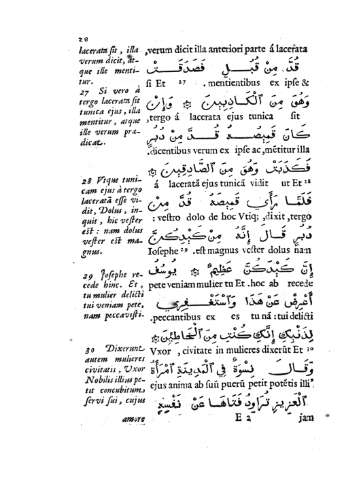 20
lacerata sit, illa
verum dicit, at-
que ille menti-
tur.
27 Si vero à
tergo lacerata sit
tunica ejus, illa
mentitur, atque
ille verum præ-
dicat.
28 Vtque tuni-
cam ejus à tergo
laceratâ esse vi-
dit, Dolus, in-
quit, hic vester
est: nam dolus
vester est ma-
gnus.
29 Josephe re-
cede hinc. Et
tu mulier delicti
tui veniam pete,
nam peccavisti.
30 Dixerunt
autem mulieres
civitatis, Vxor
Nobilis illius pe-
tit concubitum
servi sui, cujus
amore
,verum dicit illa anteriori parte á lacerata
قُدَّ مِنْ قُبُلٍ فَصَدَقَتْ
si Et .mentientibus ex ipse &
وَهُوَ مِنَ ٱلْكَاذِبِينَ وَإِنْ
,tergo á lacerata ejus tunica sit
كَانَ قَمِيصُهُ قُدَّ مِنْ دُبُرٍ
.dicentibus verum ex ipse ac, métitur illa
فَكَذَبَتْ وَهُوَ مِنَ ٱلصَّادِقِينَ
á lacerată ejus tunică vidit ut Et 28
فَلَمَّا رَأَى قَمِيصَهُ قُدَّ مِنْ
: vestro dolo de hoc Vtiq; ,dixit ,tergo
دُبُرٍ قَالَ إِنَّهُ مِنْ كَيْدِكُنَّ
Iosephe 29 .est magnus vester dolus nam
إِنَّ كَيْدَكُنَّ عَظِيمٌ يُوسُفُ
pete veniam mulier tu Et .hoc ab recede
أَعْرِضْ عَنْ هَذَا وَٱسْتَغْفِرِي
.peccantibus ex es tu nā: tui delicti
لِذَنْبِكِ إِنَّكِ كُنْتِ مِنَ ٱلْخَاطِئِينَ
Vxor , civitate in mulieres dixerūt Et 30
وَقَالَ نِسْوَةٌ فِي ٱلْمَدِينَةِ ٱمْرَأَةُ
ejus anima ab suū puerū petit potētis illi
ٱلْعَزِيزِ تُرَاوِدُ فَتَاهَا عَنْ نَفْسِهِ
E 2 jam